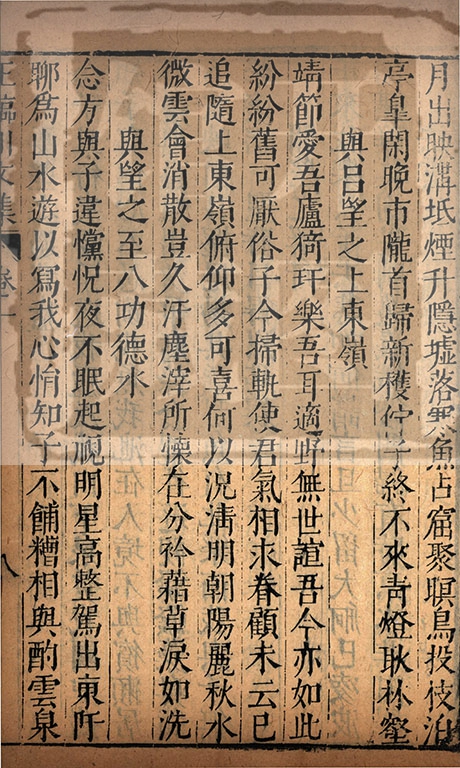 月出映溝坻煙升隱墟落寒魚占窟聚暝鳥投枝泊
亭皋閑晚市隴首歸新穫佇子終不來青燈耿林壑
與呂望之上東嶺
靖節愛吾廬猗玗樂吾耳適野無世諠吾今亦如此
紛紛舊可厭俗子今掃軌使君氣相求眷顧未云已
追隨上東嶺俯仰多可喜何以況清明朝陽麗秋水
微雲會消散豈久汙塵滓所懷在分衿藉草淚如洗
與望之至八功德水
念方與子違懭怳夜不眠起視明星高整駕出東阡
聊為山水遊以寫我心悁知子不餔糟相與酌雲泉
王臨川文集 卷二 八